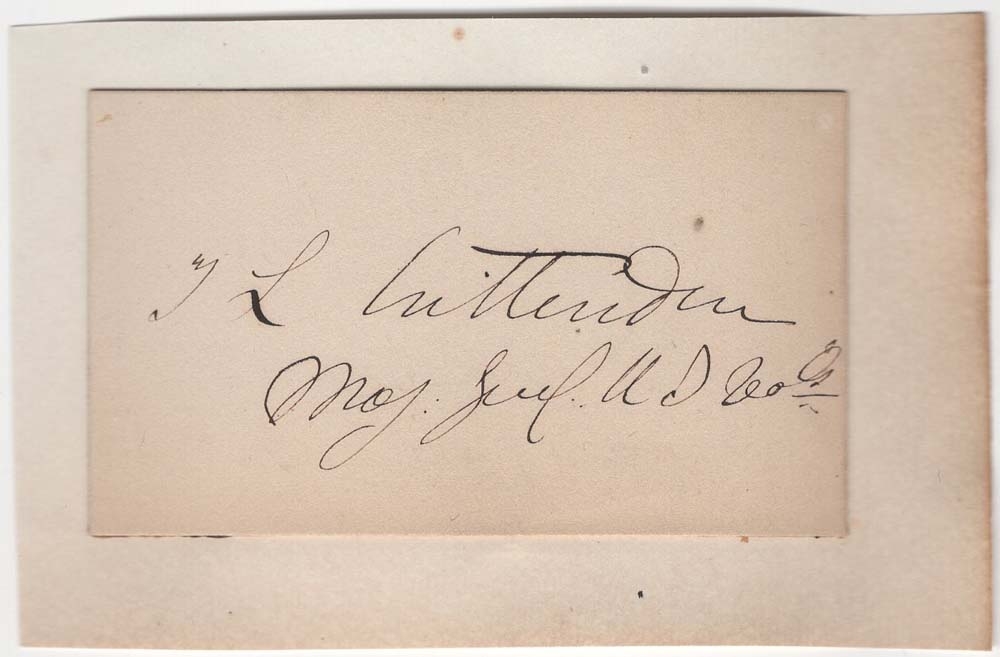 T L Crittenden
Maj. Genl. U S Vols